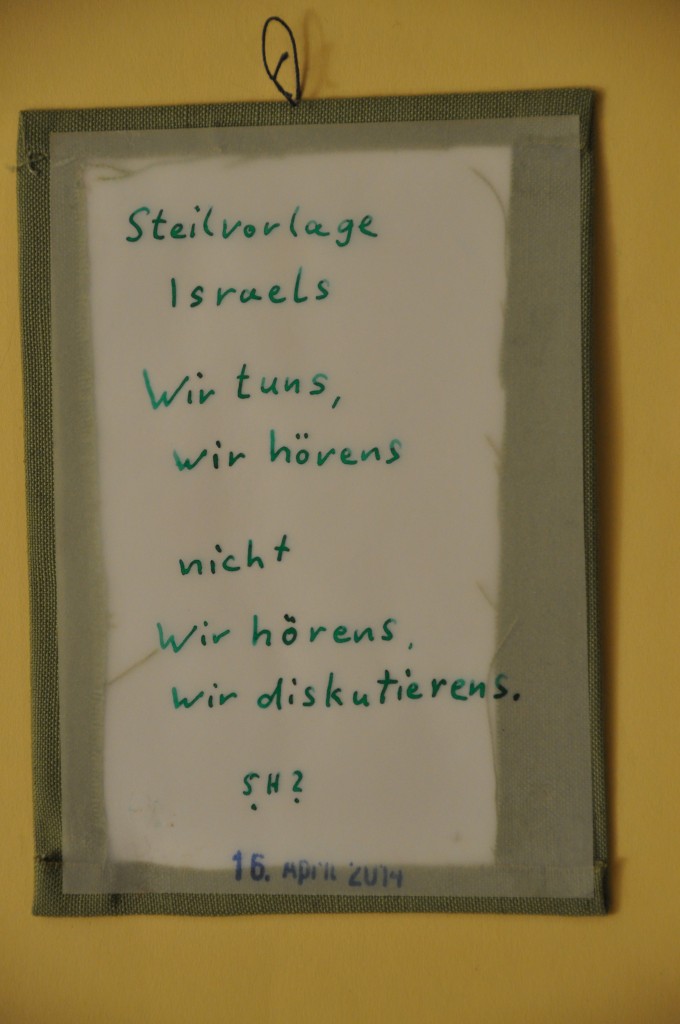 Steilvorlage
Israels
Wir tuns,
wir hörens
nicht
Wir hörens,
wir diskutierens.
SH2
16. April 2014